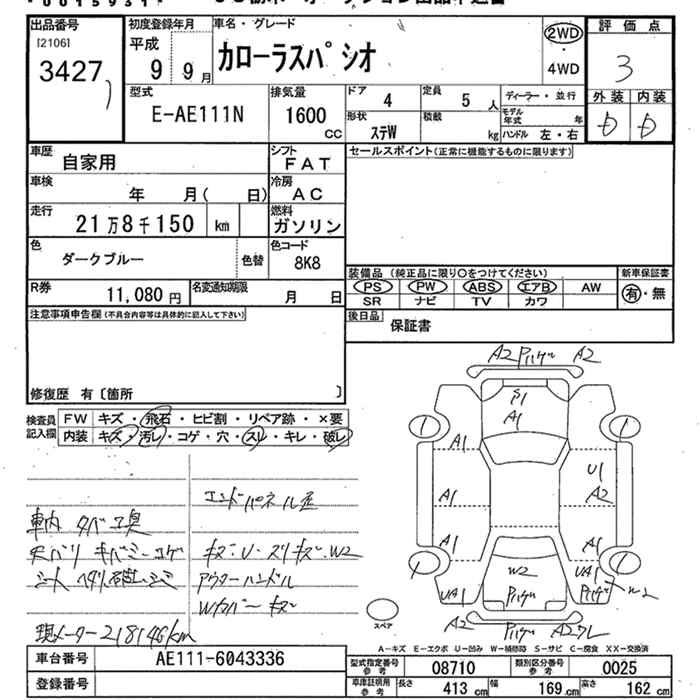 *0015931*
出品番号
[2106]
3427
初度登録年月
平成
9 9月
車名・グレード
カローラスパシオ
2WD
・
4WD
評価点
3
外装 内装
D D
型式
E-AE111N
排気量
1600
cc
ドア
4
定員
5 人
ディーラー・並行
形状
ステW
積載
kg
モデル年式
年
ハンドル 左・右
車歴
自家用
シフト
FAT
セールスポイント(正常に機能するものに限ります)
車検
年 月( 日)
冷房
AC
走行
21万8千150 km
燃料
ガソリン
色
ダークブルー
色替
色コード
8K8
装備品(純正品に限り○をつけてください)
新車保証書
PS PW ABS エアB AW
有・無
SR ナビ TV カワ
R券
11,080円
名変通知期限
月 日
後日品
保証書
注意事項申告欄(不具合内容等は具体的に記入して下さい)
修復歴 有〔箇所 〕
検査員
記入欄
FW キズ・飛石・ヒビ割・リペア跡・×要
内装 キズ・汚レ・コゲ・穴・スレ・キレ・破レ
エンドパネル
車内 タバ 工具
キズ・U・スリキズ・W2
アウターハンドル
Wカバーキズ
現メーター218146km
A2 A2
A1
A1
U1
A1
A2
A1
A1
W2
UA1
UA1
W2
A2
スペア
A-キズ E-エクボ U-凹み W-補修跡 S-サビ C-腐食 XX-交換済
車台番号
AE111-6043336
登録番号
型式指定番号
参考
08710
類別区分番号
参考
0025
車庫証明用
参考
長さ
413 cm
幅
169 cm
高さ
162 cm